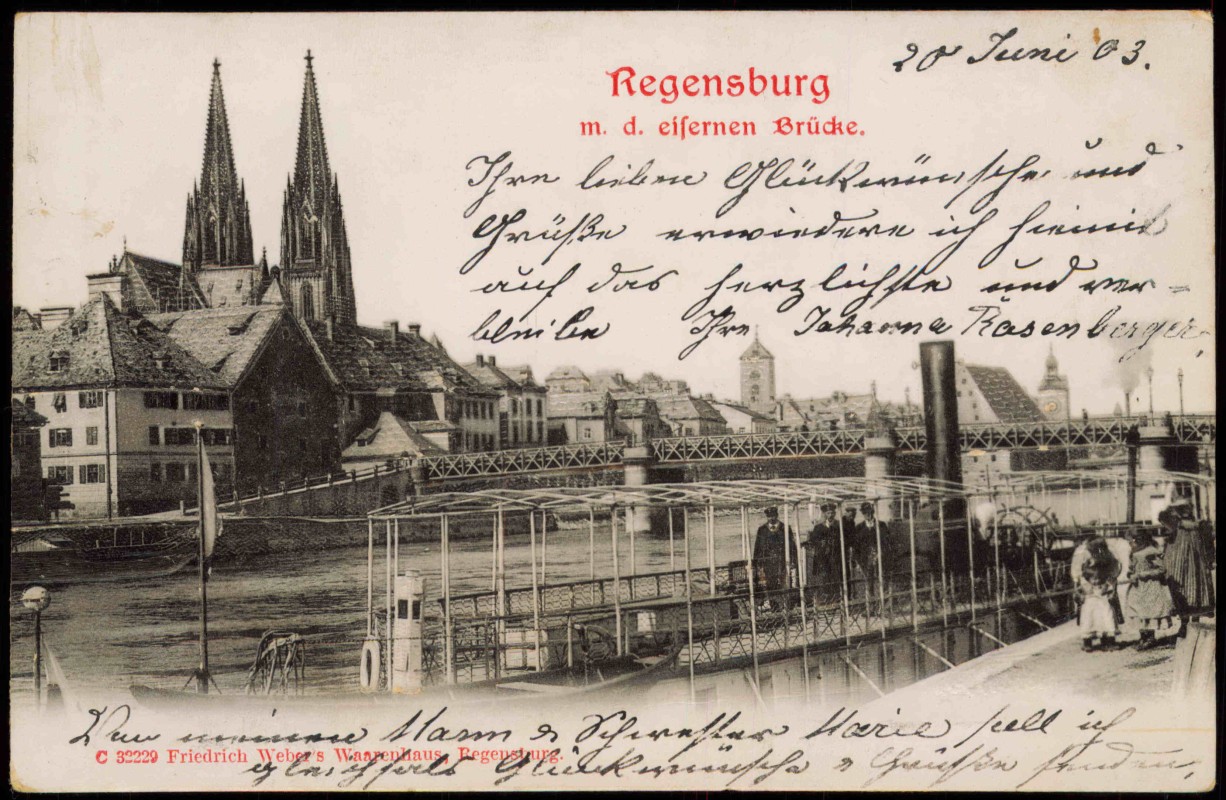 20 Juni 03.
Regensburg
m. d. eiſernen Brücke.
Ihre lieben Glückwünsche und
Grüße erwiedere ich hiemit
auf das herzlichste und ver-
bleibe Ihre Johanna Rasenberger.
Von meinem Mann & Schwester Marie soll ich
C 32229 Friedrich Weber's Waarenhaus, Regensburg.
gleichfals Glückwünsche & Grüße senden,